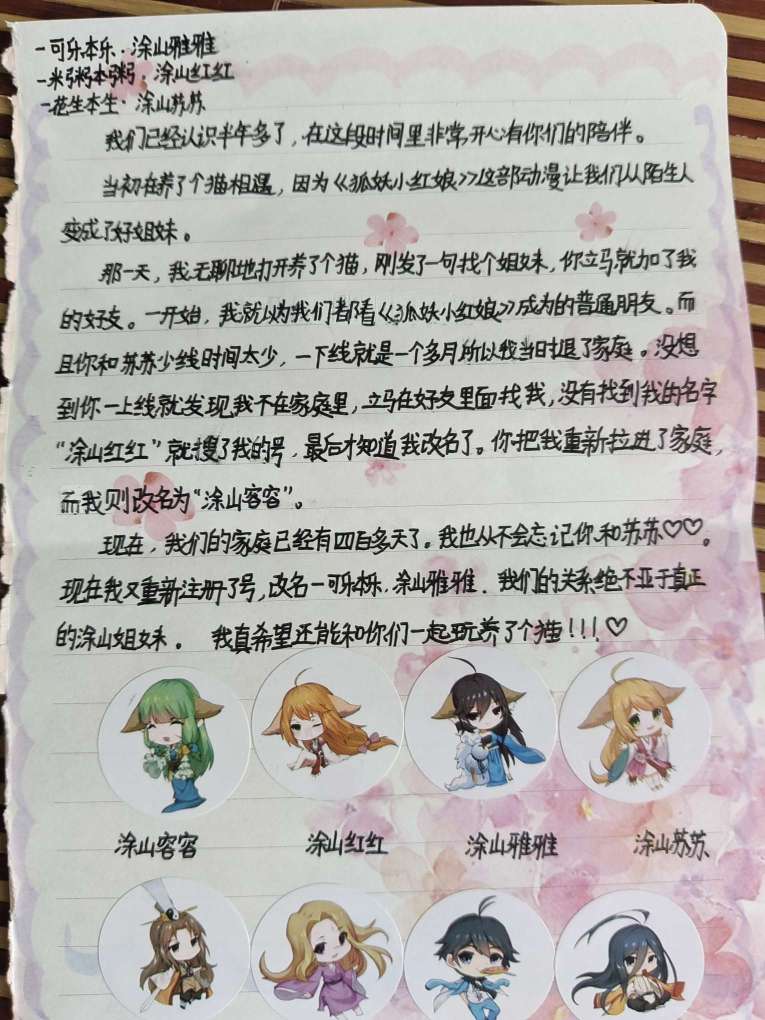 -可乐本乐·涂山雅雅
-米粥本粥·涂山红红
-花生本生·涂山苏苏
我们已经认识半年多了，在这段时间里非常开心有你们的陪伴。
当初在养了个猫相遇，因为《狐妖小红娘》这部动漫让我们从陌生人
变成了好姐妹。
那一天，我无聊地打开养了个猫，刚发了一句找个姐妹，你立马就加了我
的好友。一开始，我就以为我们都看《狐妖小红娘》成为的普通朋友。而
且你和苏苏少线时间太少，一下线就是一个多月所以我当时退了家庭。没想
到你一上线就发现我不在家庭里，立马在好友里面找我，没有找到我的名字
“涂山红红”就搜了我的号，最后才知道我改名了。你把我重新拉进了家庭，
而我则改名为“涂山容容”。
现在，我们的家庭已经有四百多天了。我也从不会忘记你和苏苏♡♡。
现在我又重新注册了号，改名一可乐本乐·涂山雅雅．我们的关系绝不亚于真正
的涂山姐妹。 我真希望还能和你们一起玩养了个猫!!!♡
涂山容容 涂山红红 涂山雅雅 涂山苏苏